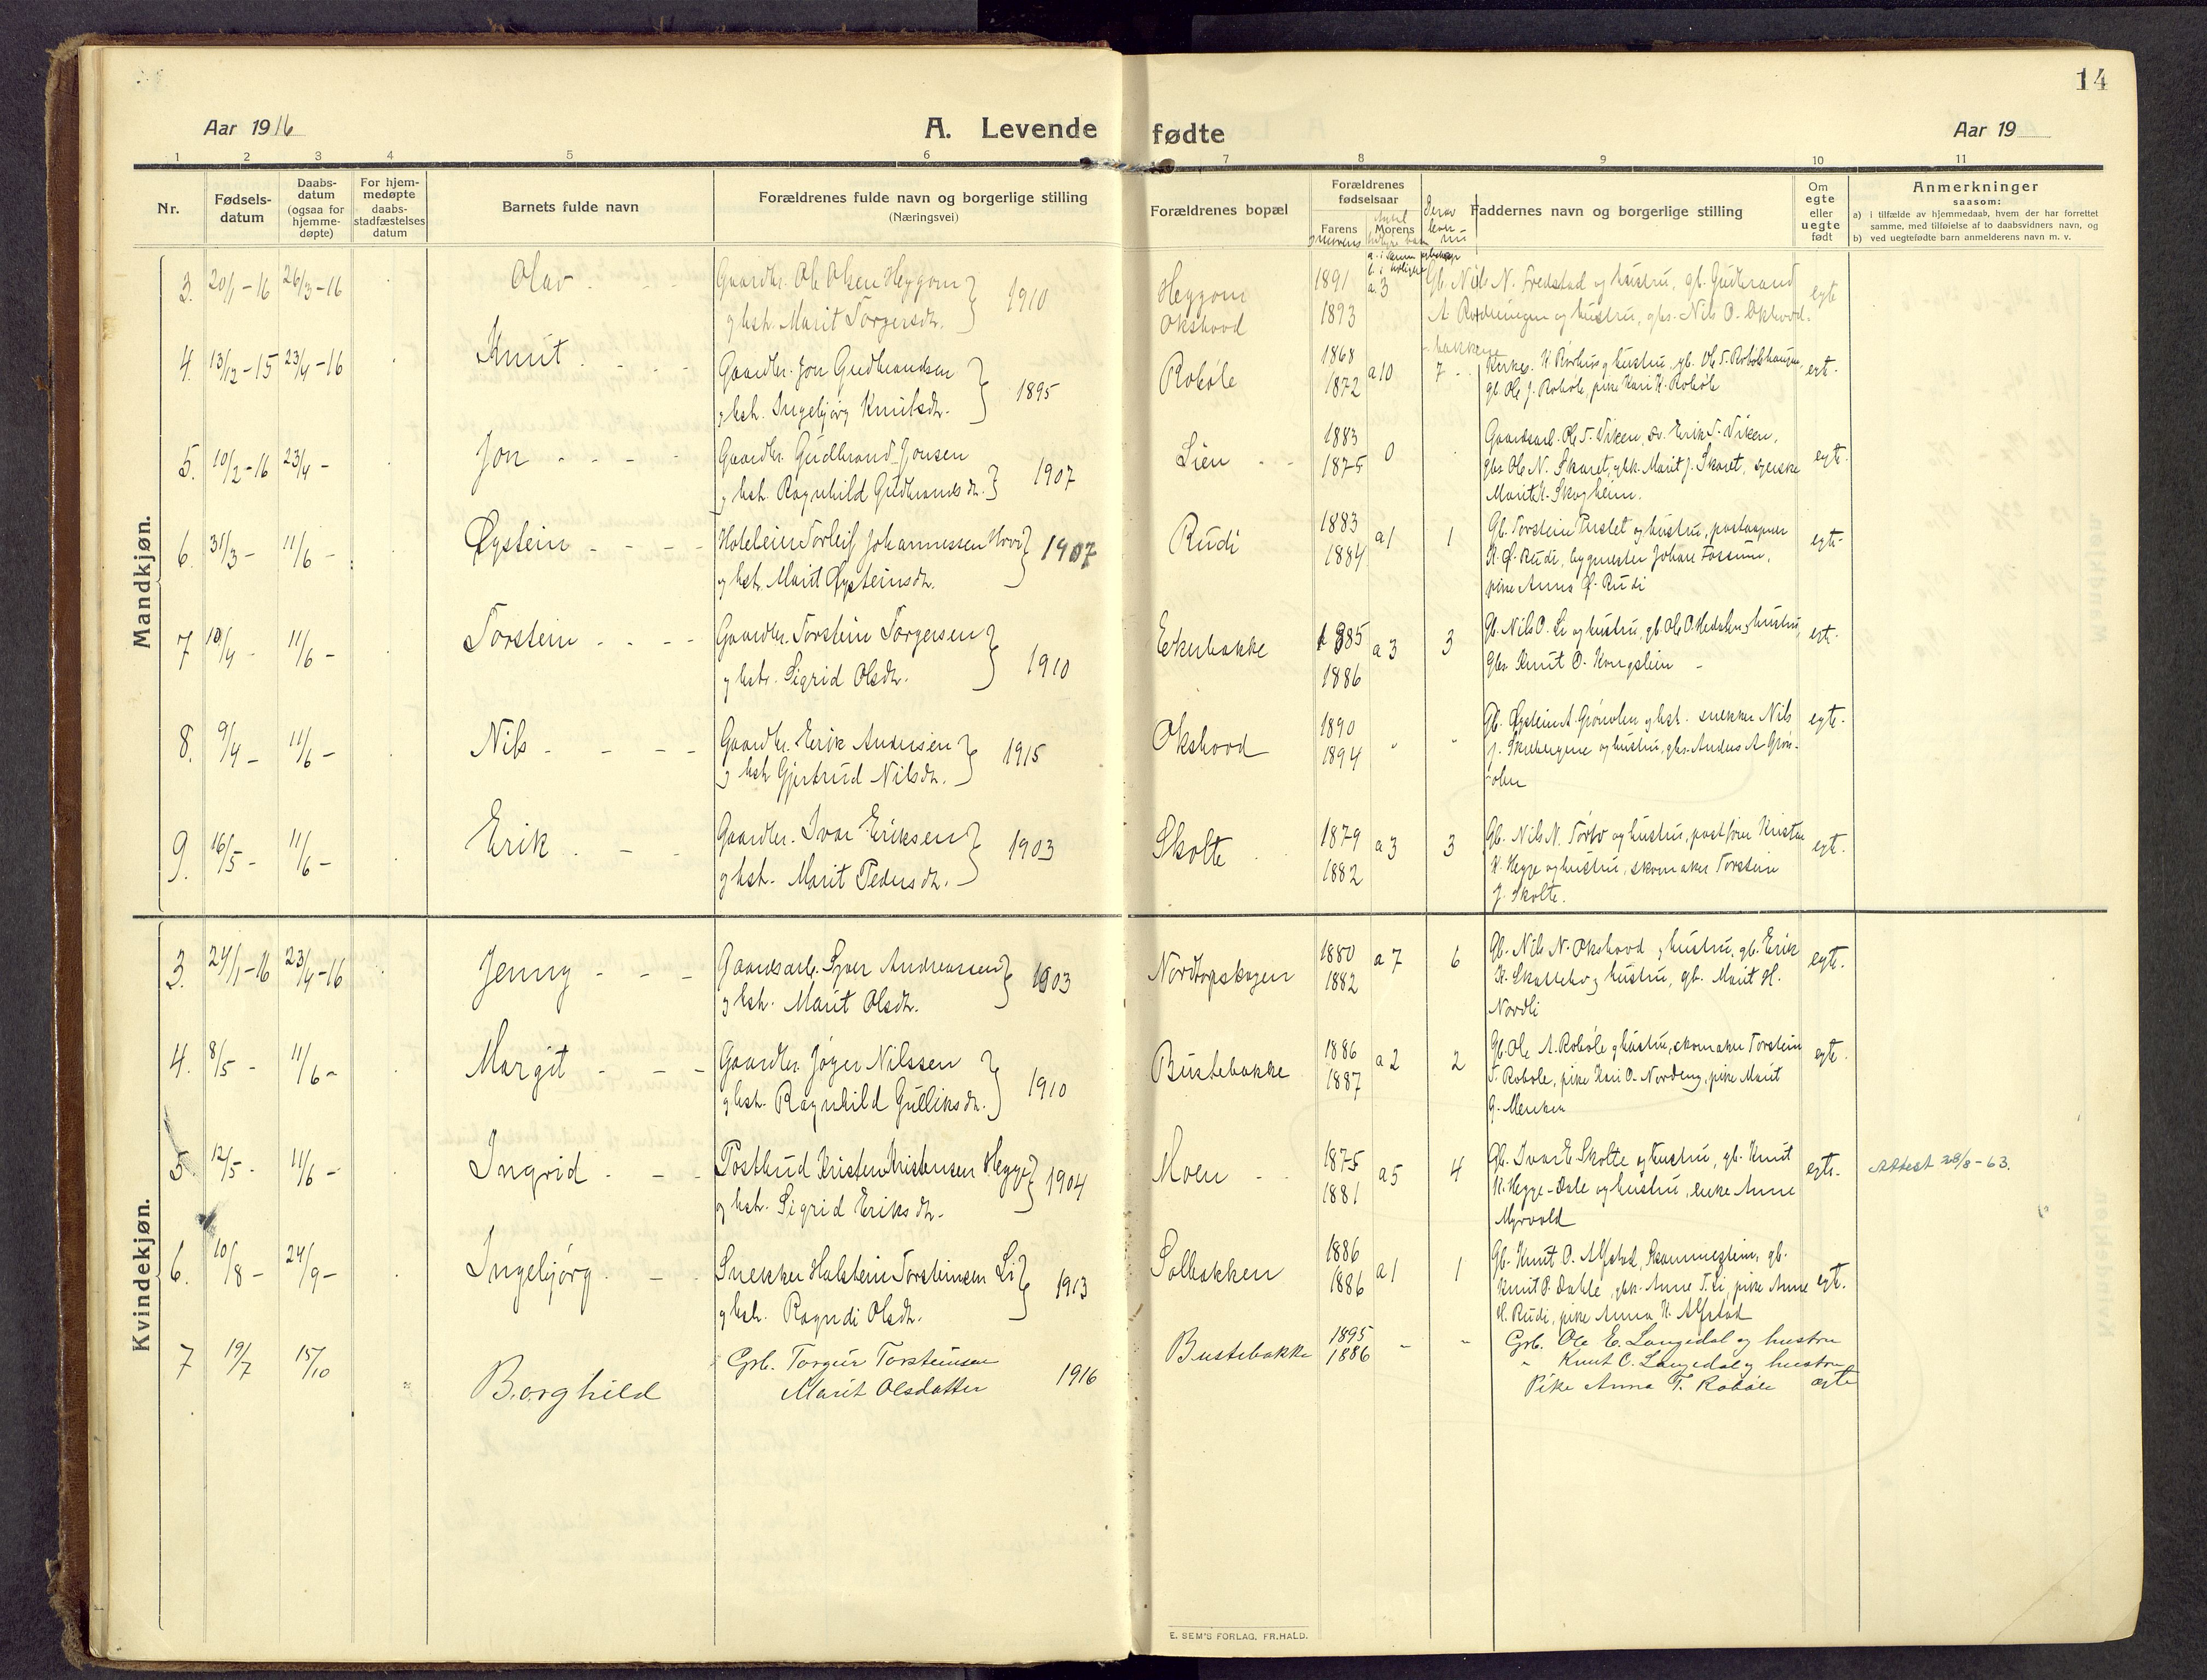 14
Aar 1916
A. Levende fødte
Aar 19
1 2 3 4 5 6 7 8 9 10 11
Nr.
Fødsels-
datum
Daabs-
datum
(ogsaa for
hjemme-
døpte)
For hjem-
medøpte
daabs-
stadfæstelses
datum
Barnets fulde navn
Forældrenes fulde navn og borgerlige stilling
(Næringsvei)
Forældrenes bopæl
Forældrenes
fødselsaar
Farens Morens
Faddernes navn og borgerlige stilling
Om
egte
eller
uegte
født
Anmerkninger
saasom:
a) i tilfælde av hjemmedaab, hvem der har forrettet
samme, med tilføielse af to daabsvidners navn, og
b) ved uegtefødte barn anmelderens navn m. v.
Mandkjøn.
3. 20/1-16 26/3-16 Olav Gaardbr. Ole Olsen Heggom 1910 Heggom 1891 a.3 Gb. Nils N. Fredstad og hustru, gb. Gudbrand egte
og hst. Marit Torgersdtr. Okshovd 1893 og hustru, gbs. Nils O. Okshovd-
bakken
4. 13/12-15 23/4-16 Knut Gaardbr. Jon Gudbrandsen 1895 Robøle 1868 a10 7 og hustru, gb. Ole T. egt.
og hst. Ingebjørg Knutsdtr. 1872 gb. Ole J. Robøle, pike Kari K. Robøle
5. 10/2-16 23/4- Jon Gaardbr. Gudbrand Jonsen 1907 Lien 1883 0 Gaardsarb. Ole T. Viken, Erik T. Viken, egte.
og hst. Ragnhild Gudbrandsdtr. 1875 gbs. Ole N. Skaret, gbk. Marit J. Skaret, syerske
Marit K. Skogheim.
6. 31/3- 11/6- Øystein Torleif Johannessen Hovi 1907 Rudi 1883 a1 1 Gb. Torstein og hustru, postaapner egte.
og hst. Marit Øysteinsdtr. 1884 K. Ø. Rudi, bygmester Johan Fossum,
pike Anna Ø. Rudi
7 10/4- 11/6- Torstein Gaardbr. Torstein Torgersen 1910 Ekerbakke 1885 a3 3 Gb. Nils O. Li og hustru, gb. Ole O. og hustru, egte.
og hst. Sigrid Olsdtr. 1886 Gbs. Knut O. Kongslien -
8. 9/4- 11/6- Nils Gaardbr. Erik Andersen 1915 Okshovd 1890 " " Gb. Øystein A. Grønolen og hst. snekker Nils egte.
og hst. Gjertrud Nilsdtr. 1894 J. og hustru, gbs. Anders A. Grøn-
olen
9. 16/5- 11/6- Erik Gaardbr. Ivar Eriksen 1903 Skolte 1879 a3 3 Gb. Nils N. og hustru, postfører Kristen egte.
og hst. Marit Pedersdtr. 1882 K. Hegge og hustru, skomaker Torstein
J. Skolte.
Kvindekjøn.
3. 24/1-16 23/4-16 Jenny Gaardsarb. Syver Andreassen 1903 Nordtorpskogen 1880 a7 6 Gb. Nils N. Okshovd og hustru, gb. Erik egte.
og hst. Marit Olsdtr. 1882 K. Skattebo og hustru, gb. Marit H.
Nordli
4. 8/5- 11/6- Margit Gaardbr. Jøger Nilssen 1910 Bustebakke 1886 a2 2 Gb. Ole A. Robøle og hustru, skomaker Torstein egte.
og hst. Ragnhild Gulliksdtr. 1887 T. Robøle, pike Kari O. Nordeng, pike Marit
G. Menken
5. 12/5- 11/6- Ingrid Postbud Kristen Kristensen Hegge 1904 Moen 1875 a5 4 Gb. Ivar E. Skolte og hustru, gb. Knut egte. Attest 28/8-63.
og hst. Sigrid Eriksdtr. 1881 K. Hegge-Dale og hustru, enke Anne
Myrvold
6. 10/8- 24/9- Ingebjørg Snekker Halstein Torsteinsen Li 1913 Solbakken 1886 a1 1 Gb. Knut O. Alfstad, gb.
og hst. Ragndi Olsdtr. 1886 Knut P. Dahle, gbk. Anne T. Li, pike Anne egte.
H. Rudi, pike Anna K. Alfstad
7 19/7 15/10 Borghild Grb. Torgeir Torsteinsen 1916 Bustebakke 1895 - - Grb. Ole E. Langedal og hustru
Marit Olsdatter 1886 " Knut O. Langedal og hustru
Pike Anna T. Robøle egte
E. SEM'S FORLAG, FR.HALD.